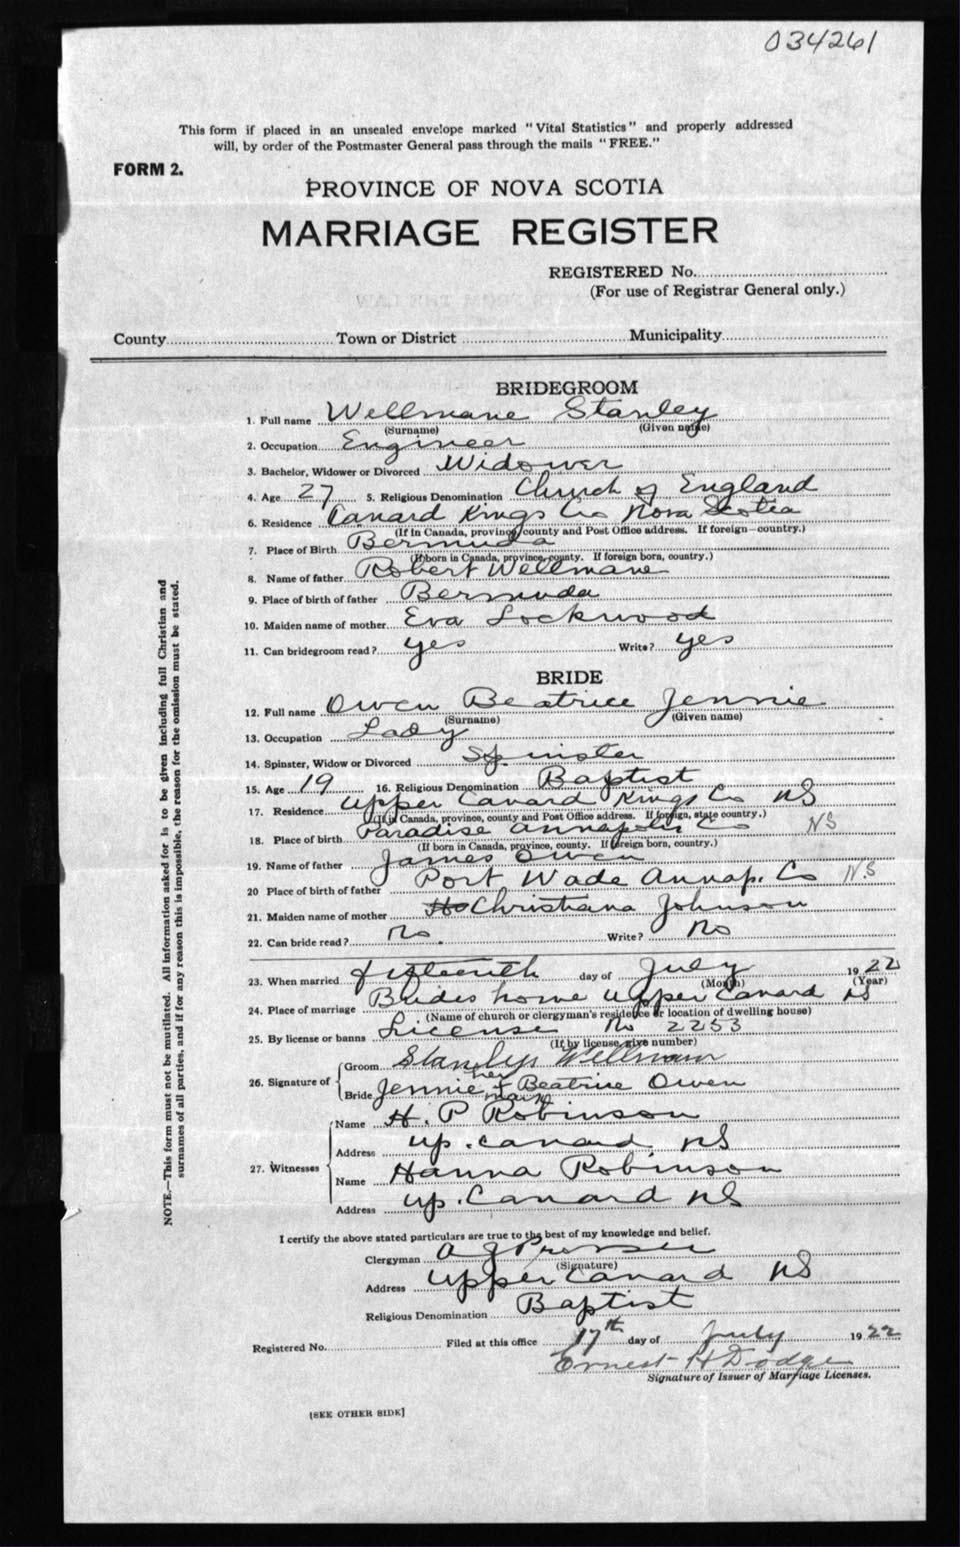 034261
This form if placed in an unsealed envelope marked "Vital Statistics" and properly addressed
will, by order of the Postmaster General pass through the mails "FREE."
FORM 2.
PROVINCE OF NOVA SCOTIA
MARRIAGE REGISTER
REGISTERED No.
(For use of Registrar General only.)
County Town or District Municipality
BRIDEGROOM
1. Full name Wellmane Stanley
(Surname) (Given name)
2. Occupation Engineer
3. Bachelor, Widower or Divorced Widower
4. Age 27 5. Religious Denomination Church of England
6. Residence Canard Kings Co Nova Scotia
(If in Canada, province, county and Post Office address. If foreign—country.)
7. Place of Birth Bermuda
(If born in Canada, province, county. If foreign born, country.)
8. Name of father Robert Wellmane
9. Place of birth of father Bermuda
10. Maiden name of mother Eva Lockwood
11. Can bridegroom read? yes Write? yes
BRIDE
12. Full name Owen Beatrice Jennie
(Surname) (Given name)
13. Occupation Lady
14. Spinster, Widow or Divorced Spinster
15. Age 19 16. Religious Denomination Baptist
17. Residence Upper Canard Kings Co NS
(If in Canada, province, county and Post Office address. If foreign, state country.)
18. Place of birth Paradise Annapolis Co NS
(If born in Canada, province, county. If foreign born, country.)
19. Name of father James Owen
20 Place of birth of father Port Wade Annap. Co N.S
21. Maiden name of mother Christiana Johnson
22. Can bride read? No. Write? No
23. When married fifteenth day of July 1922
(Month) (Year)
24. Place of marriage Brides home Upper Canard NS
(Name of church or clergyman's residence or location of dwelling house)
25. By license or banns License No 2253
(If by license, give number)
26. Signature of Groom Stanlys Wellman
Bride Jennie her x mark Beatrice Owen
27. Witnesses Name H. P Robinson
Address up. Canard NS
Name Hanna Robinson
Address up. Canard NS
I certify the above stated particulars are true to the best of my knowledge and belief.
Clergyman A J Prosser
(Signature)
Address Upper Canard NS
Religious Denomination Baptist
Registered No. Filed at this office 17th day of July 1922
Ernest H Dodge
Signature of Issuer of Marriage Licenses.
[SEE OTHER SIDE]
NOTE.—This form must not be mutilated. All information asked for is to be given including full Christian and
surnames of all parties, and if for any reason this is impossible, the reason for the omission must be stated.